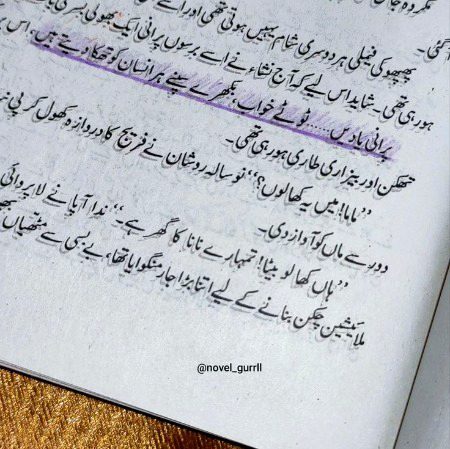 مگر وہ جان
آگئی۔
پھپھو کی فیملی ہر دوسری شام یہیں ہوتی تھی اور اسے
ہو رہی تھی۔ شاید اس لیے کہ آج نشاء نے اسے برسوں پرانی ایک بھولی بسری
پرانی یادیں..... ٹوٹے خواب، بکھرے سپنے ہر انسان کو تھکا دیتے ہیں، اس پر
تھکن اور بیزاری طاری ہو رہی تھی۔
’’ماما! میں یہ کھا لوں؟‘‘ نو سالہ روشان نے فریج کا دروازہ کھول کر
دور سے ماں کو آواز دی۔
’’ہاں کھا لو بیٹا! تمہارے نانا کا گھر ہے۔‘‘ ندا آپا نے لاپروائی
ملائیشین چکن بنانے کے لیے اتنا بڑا جار منگوایا تھا، بے بسی سے مٹھیاں
@novel_gurrll